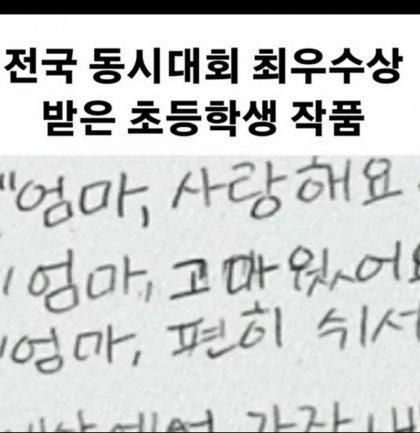 전국 동시대회 최우수상
받은 초등학생 작품
"엄마, 사랑해요
"엄마, 고마웠어요
"엄마, 편히 쉬세
가장